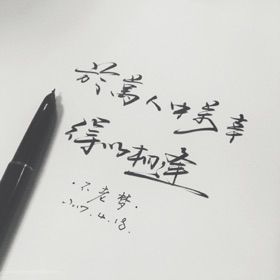 於萬人中萬幸
得以相逢
·不老梦·
2017.4.18.